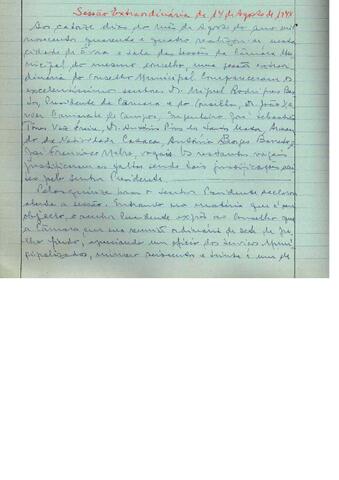 Sessão Extraordinária de 14 de Agosto de 1944
Aos catorze dias do mês de Agosto do ano mil
novecentos quarenta e quatro realizou-se nesta
cidade de Évora e sala das sessões da Câmara Mu-
nicipal do mesmo concelho, uma sessão extraor-
dinária do Conselho Municipal. Compareceram os
excelentíssimos senhores Dr. Miguel Rodrigues Bas-
tos, Presidente da Câmara e do Conselho, Dr. João Xa-
vier Camarate de Campos, Engenheiro José Sebastião
Vaz Freire, Dr. António Pires dos Santos
da Natividade António Borges Barreto,
José Francisco vogais. Os restantes vogais
justificaram as faltas sendo tais justificações
pelo Senhor Presidente.
Pelas quinze horas o Senhor Presidente declarou
aberta a sessão. Entrando na matéria que é seu
objecto, o senhor Presidente expôs ao Conselho que
a Câmara em sua reunião ordinária de sete de ju-
lho findo, apreciando um ofício dos Serviços Muni-
cipalizados, número seiscentos e trinta e um de